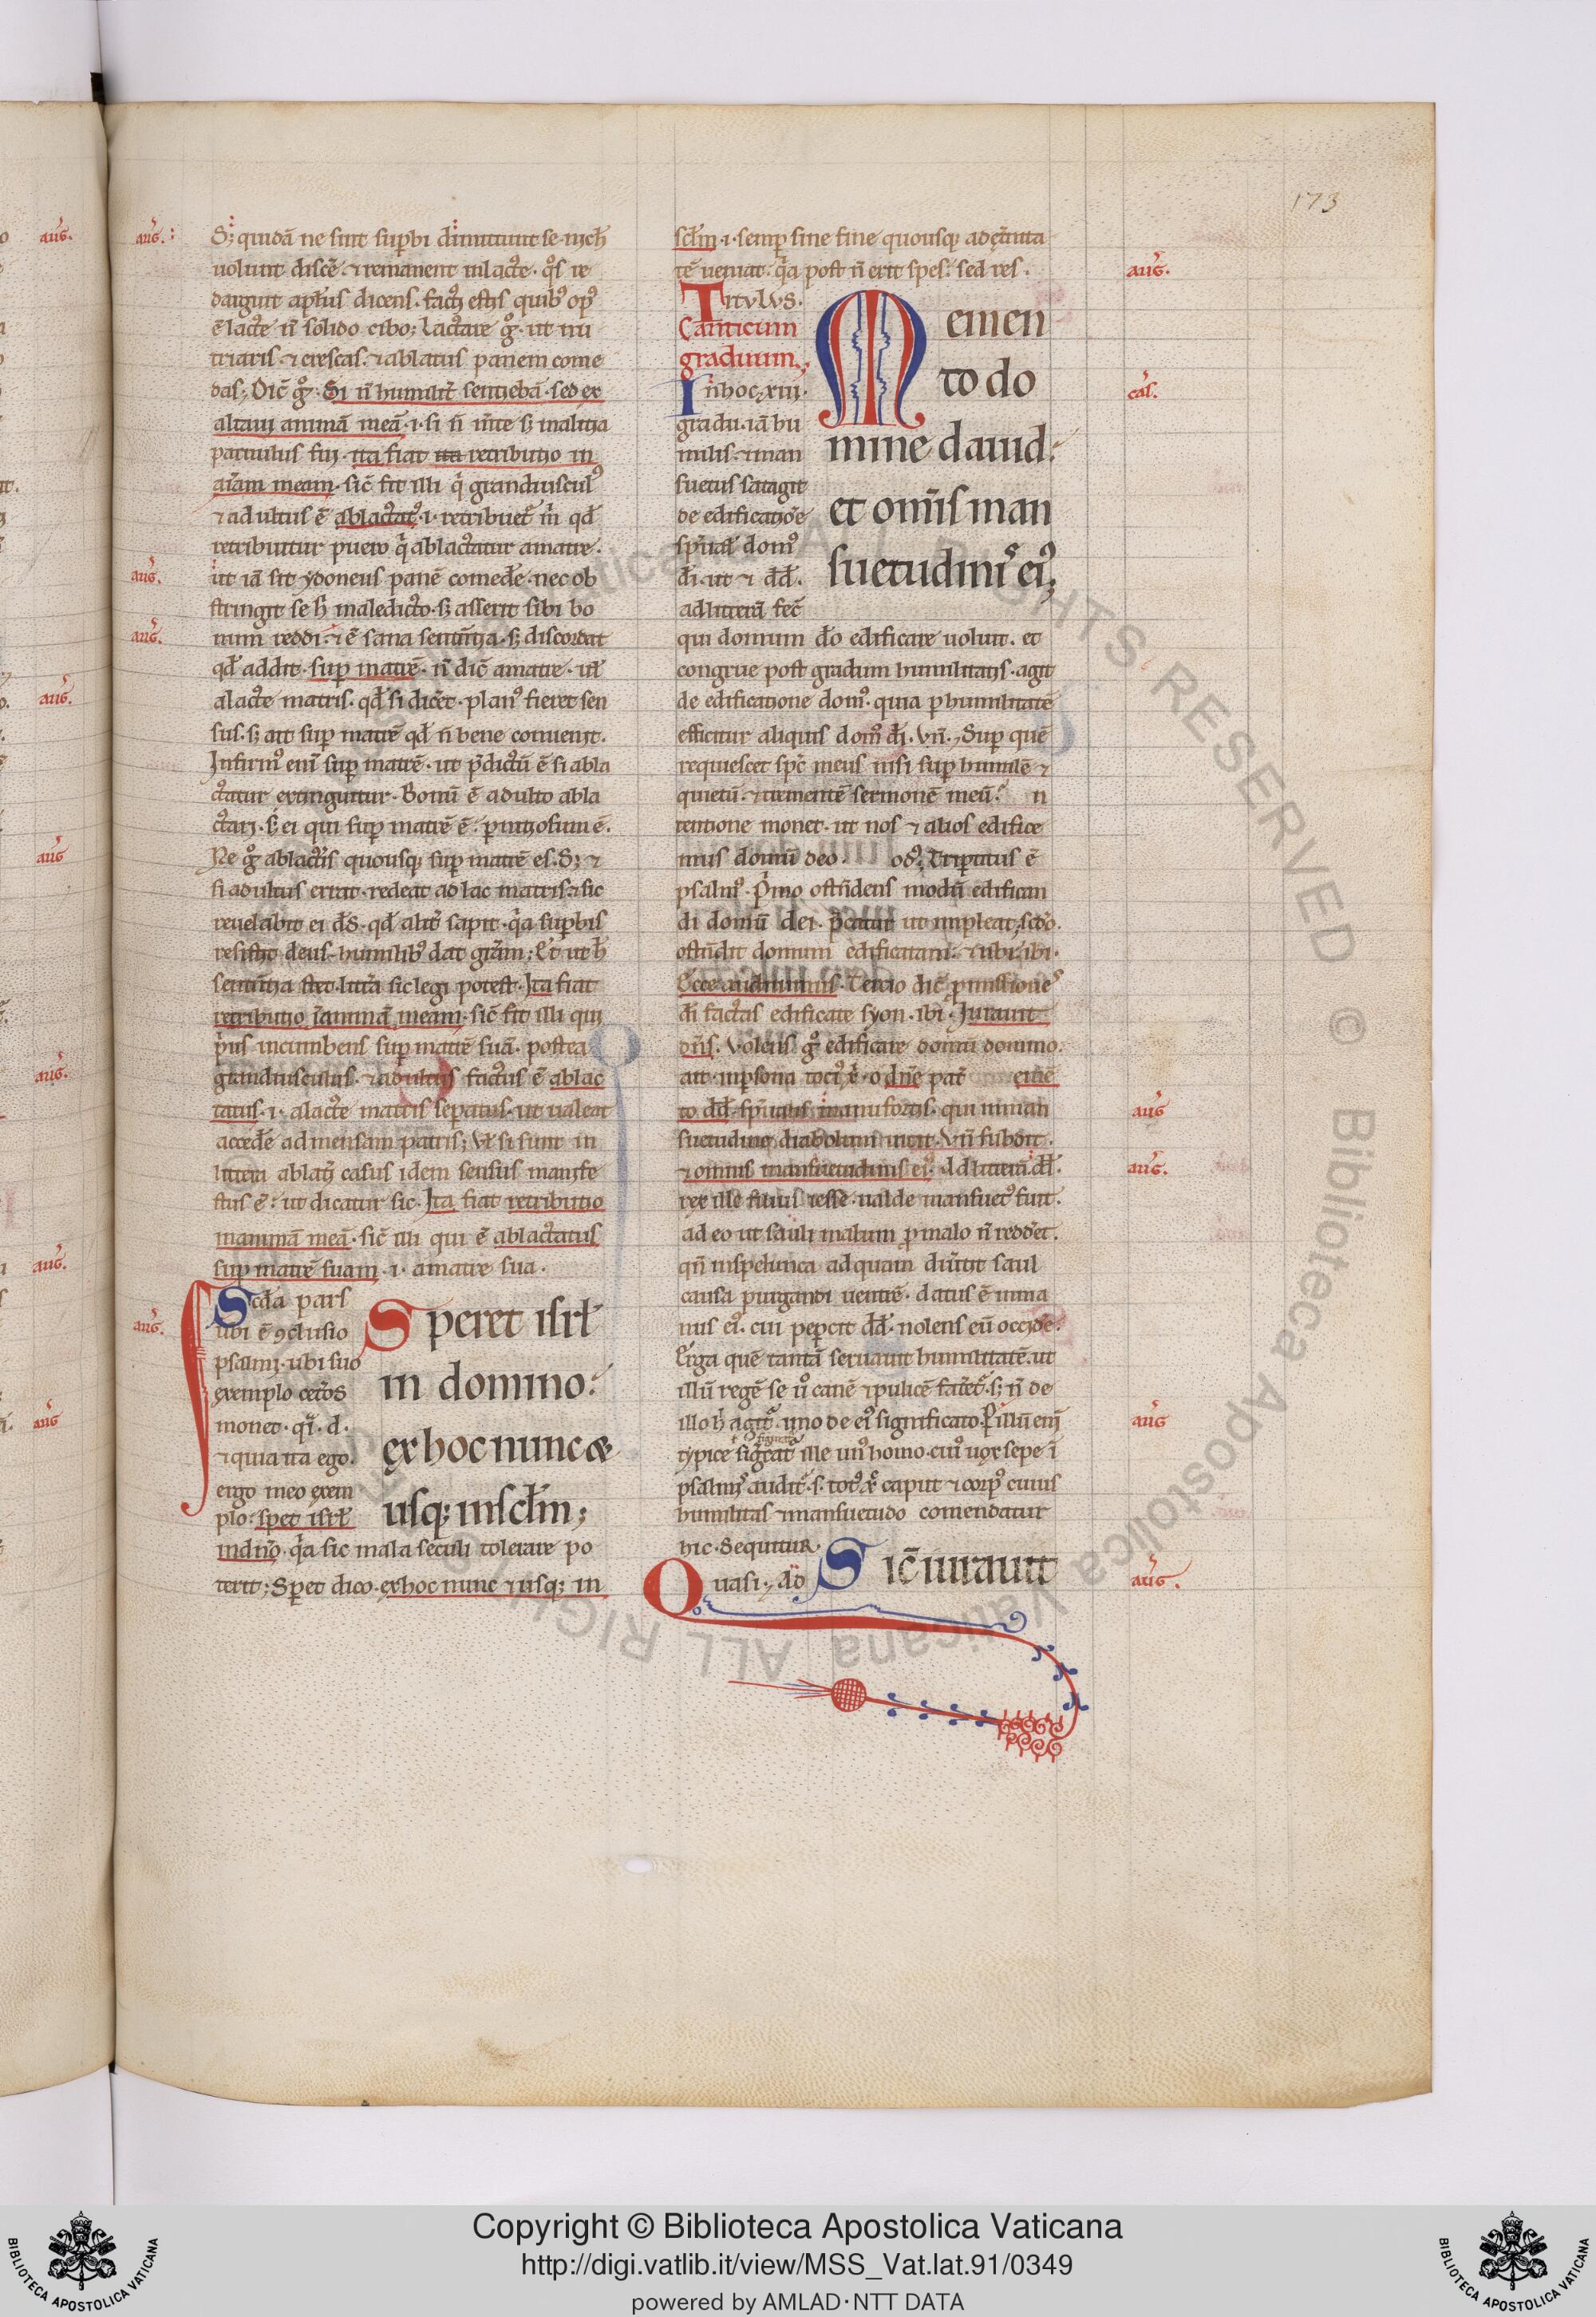 173
aug.
S; quidā ne sint suꝑbi dimittunt se nich
uolunt discē ⁊ remanent in lacte. qͦs re
darguit aptus dicens. facti estis quibꝰ opꝰ
ē lacte n̄ solido cibo; lactare gͦ. ut nu
triaris. ⁊ crescas. ⁊ ablatus panem come
das; Dic̄ gͦ. Si n̄ humilit̄ sentiebā. sed ex
altaui animā meā. i. si n̄ in̄te s; malitia
paruulus fui. ita fiat ita retributio in
aīam meam. sic̄ fit illi qͥ grandiusculꝰ
⁊ adultus ē ablactatꝰ. i. retribuet̄ m̄ qd̄
retribuitur puero qͥ ablactatur a matre.
aug.
ut iā sit ydoneus panē comede. nec ob
stringit se h̄ maledicto. s; asserit sibi bo
aug.
num reddi. ⁊ ē sana sententia. s; discordat
qd̄ addit. suꝑ matrē. n̄ dic̄ a matre. ul̄
a lacte matris. qd̄ si dicēt. planꝰ fieret sen
sus. s; ait suꝑ matrē qd̄ n̄ bene conuenit.
Infirmꝰ enī suꝑ matrē. ut p̄dictū ē si abla
ctatur extinguitur. Bonū ē adulto abla
ctari. s; ei qui suꝑ matrē ē. ꝑnitiosum ē.
Ne gͦ ablactis quousq; suꝑ matrē es. S; ⁊
si adultus errat. redeat ad lac matris. ⁊ sic
reuelabit ei d̄s. qd̄ alit̄ sapit. qͥa suꝑbis
resistit deus. humilibꝰ dat grām; Et ut h̄
sententia stet. litt̄a sic legi potest. Ita fiat
retributio ī animā meam. sic̄ fit illi qui
pͥus incumbens suꝑ matrē suā. postea
grandiusculus. ⁊ adultus factus ē ablac
tatus. i. a lacte matris seꝑatus. ut ualeat
accede ad mensam patris; Vl̄ si sunt in
littera ablati casus idem sensus manife
stus ē. ut dicatur sic. Ita fiat retributio
in animā meā. sic̄ illi qui ē ablactatus
suꝑ matrē suam. i. a matre sua.
Scd̄a pars
aug.
ubi ē ꝯclusio
psalmi. ubi suo
exemplo cet̄os
monet. qͥ. d.
⁊ quia ita ego.
ergo meo exem
plo. spet isrl̄
in dn̄o. qͥa sic mala seculi tolerare po
terit; Speret dico. ex hoc nunc ⁊ usq; in
Speret isrl̄
in domino.
ex hoc nunc æ
usq; in sc̄lm;
sc̄lm. i. semꝑ sine fine quousq; ad et̄nita
tē ueniat. qͥa post n̄ erit spes. sed res.
aug.
Titvlvs.
Canticum
graduum.
In̄ hoc. xiii.
cas.
gradu. iā hu
milis. ⁊ man
suetus satagit
de edificatiōe
sp̄ual̄ domꝰ
dī. ut ⁊ dd̄.
ad litterā fec̄
Memen
to do
mine dauid.
et om̄is man
suetudinis eiꝰ;
qui domum dō edificare uoluit. et
congrue post gradum humilitatis. agit
de edificatione domꝰ. quia ꝑ humilitatē
efficitur aliquis domꝰ dī. Vn̄. Suꝑ quē
requiescet spc̄ meus nisi suꝑ humilē ⁊
quietū. ⁊ trementē sermonē meū. n
tentione monet. ut nos ⁊ alios edifice
mus domū deo. odꝰ. Triꝑtitus ē
psalmꝰ. Pͥmo ostēdens modū edifican
di domū dei. p̄catur ut impleat; scd̄o.
ostēdit domum edificatam. ⁊ ubi. ibi.
Ecce audiuimus. Tercio dic̄ ꝓmissiones
dī factas edificate syon. ibi. Iurauit
dn̄s. Volens gͦ edificare domū domino.
ait inꝑsona tociꝰ ē. o dn̄e pat̄ em̄e
aug
to dd̄. sp̄ualis manu fortis. qui in man
suetudine diabolum uicit. Vn̄ subdit.
aug.
⁊ omnis mansuetudinis eiꝰ. Ad litterā. dd̄.
rex ille filius iesse. ualde mansuetꝰ fuit.
ad eo ut sauli malum ꝓ malo n̄ reddēt.
qn̄ in spelunca ad quam diūtit saul
causa purgandi uentrē. datus ē in ma
nus eiꝰ. cui peꝑcit dd̄. nolens eū occide.
Erga quē tantā seruauit humilitatē. ut
illū regē se ū canē ⁊ pulicē fatet̄. s; n̄ de
aug
illo h̄ agit̄. uno de eiꝰ significato. Per illū enī
typice figͥat̄ ille unꝰ homo. cuiꝰ uox sepe ī
psalmis audit̄. s. totꝰ xp̄c caput ⁊ corpꝰ cuius
humilitas ⁊ mansuetudo comendatur
hic. Sequitur.
aug.
Quasi. Ad̄o
Sic̄ iurauit
aug.
aug.
aug
aug.
aug.
aug
RIGHTS RESERVED © Biblioteca Apostolica Vaticana ALL RIGHTS
BIBLIOTECA APOSTOLICA VATICANA
Copyright © Biblioteca Apostolica Vaticana
http://digi.vatlib.it/view/MSS_Vat.lat.91/0349
powered by AMLAD·NTT DATA
BIBLIOTECA APOSTOLICA VATICANA